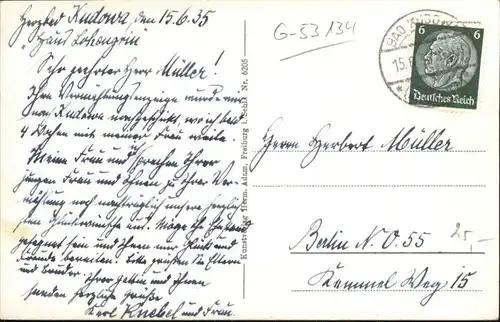 Herzbad Kudowa den 15.6.35
"Haus Lohengrin"
Sehr geehrter Herr Müller!
Ihre Vermählungsanzeige wurde mir
von Kudowa nachgeschickt, wo ich seit
4 Wochen mit meiner Frau weile.
Meine Frau und ich sprechen Ihrer
jungen Frau und Ihnen zu Ihrer Ver-
mählung noch nachträglich unsere herzlich-
sten Glückwünsche aus. Möge Ihr
gesegnet sein und Ihnen nur Glück und
Freude bereiten. Bitte grüßen Sie Eltern
und Bruder. Ihrer Gattin und Ihnen
senden herzliche Grüße
Karl Knebel und Frau.
Kunstverlag Herm. Adam, Freiburg Nr. 6205
G-53134
BAD KUDOWA
15.6
6 6
Deutsches Reich
Herrn Herbert Müller
Berlin N.O. 55
25,-
Kemmel Weg 15